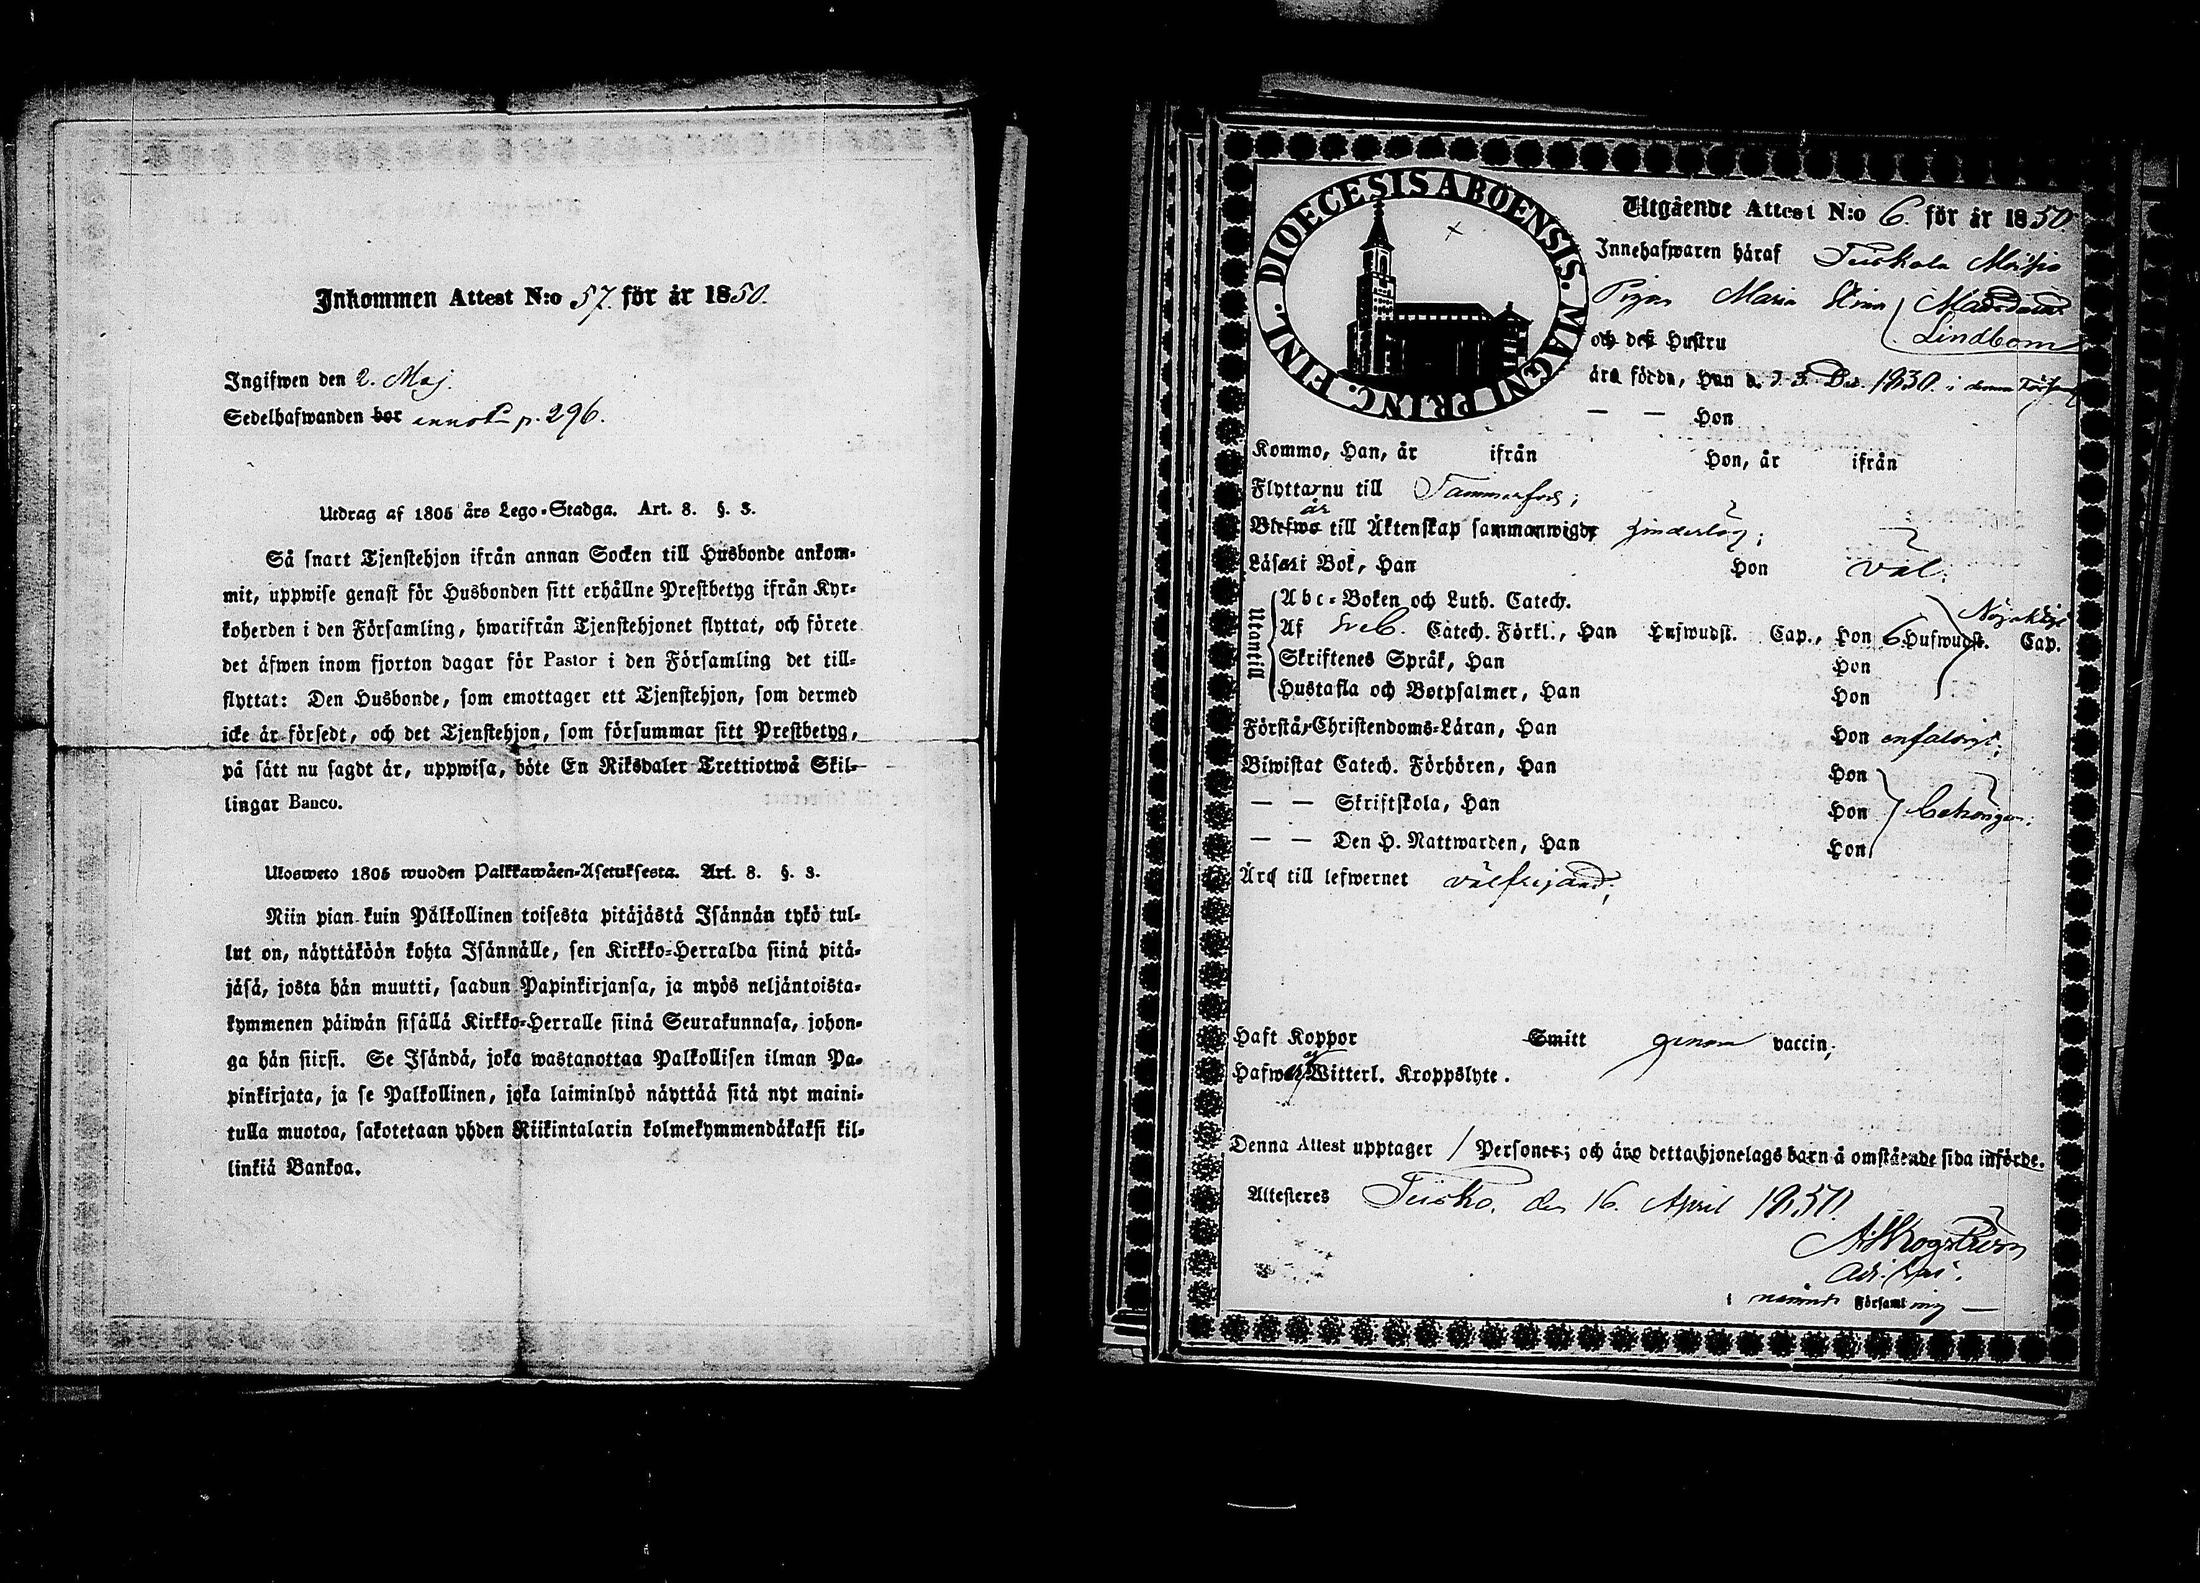 Inkommen Attest N:o 57. för år 1850.
Ingifwen den 2. Maj.
Sedelhafwanden bor p. 296.
Utdrag af 1805 års Lego-Stadga. Art. 8. §. 3.
Så snart Tjenstehjon ifrån annan Socken till Husbonde ankom-
mit, uppwise genast för Husbonden sitt erhållne Prestbetyg ifrån Kyr-
koherden i den Församling, hwarifrån Tjenstehjonet flyttat, och förete
det äfwen inom fjorton dagar för Pastor i den Församling det till-
flyttat: Den Husbonde, som emottager ett Tjenstehjon, som dermed
icke är försedt, och det Tjenstehjon, som försummar sitt Prestbetyg,
på sätt nu sagdt är, uppwisa, böte En Riksdaler Trettiotwå Skil-
lingar Banco.
Ulosweto 1805 wuoden Palkkawäen-Asetuksesta. Art. 8. §. 3.
Niin pian kuin Pälkollinen toisesta pitäjästä Isännän tykö tul-
lut on, näyttäköön kohta Isännälle, sen Kirkko-Herralda siinä pitä-
jäsä, josta hän muutti, saadun Papinkirjansa, ja myös neljäntoista-
kymmenen päiwän sisällä Kirkko-Herralle siinä Seurakunnasa, johon-
ga hän siirsi. Se Isändä, joka wastanottaa Palkollisen ilman Pa-
pinkirjata, ja se Palkollinen, joka laiminlyö näyttää sitä nyt maini-
tulla muotoa, sakotetaan yhden Riikintalarin kolmekymmendäkaksi kil-
linkiä Bankoa.
DIOECESIS ABOENSIS. MAGNI PRINC. FINL.
Utgående Attest N:o 6. för år 1850.
Innehafwaren häraf Teiskola
Pigan Maria Stina
Lindbom
och deß Hustru
äro födda, Han d. Dec. 1830. i denna Församl
— — Hon
Kommo, Han, år ifrån Hon, år ifrån
Flyttar nu till Tammerfors;
är
Blefwo till Äktenskap sammanwigde hinderlös;
Läsa i Bok, Han Hon väl.
Utantill
Abc-Boken och Luth. Catech.
Af Sveb. Catech. Förkl., Han Hufwudst. Cap., Hon 6 Hufwudst. Cap.
Skriftenes Språk, Han Hon
Hustafla och Botpsalmer, Han Hon
Förstår Christendoms-Läran, Han Hon enfaldigt;
Biwistat Catech. Förhören, Han Hon
— — Skriftskola, Han Hon
— — Den H. Nattwarden, Han Hon
Äro till lefwernet välfrejdad;
Haft Koppor Smitt genom vaccin;
Hafwa Witterl. Kroppslyte.
Denna Attest upptager 1 Personer; och äro detta hjonelags barn å omstående sida införde.
Attesteres Teisko. den 16. April 1850.
i nämnde Församling —